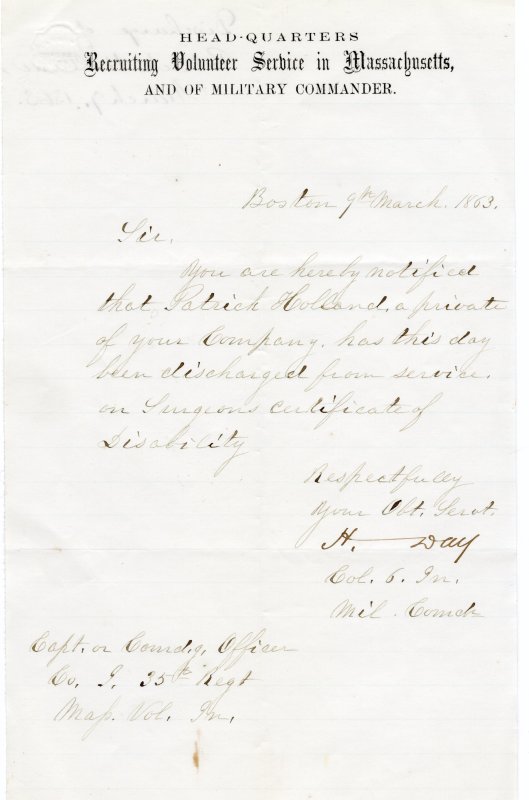 HEAD-QUARTERS
Recruiting Volunteer Service in Massachusetts,
AND OF MILITARY COMMANDER.
Boston 9th March. 1863.
Sir,
You are hereby notified
that, Patrick Holland, a private
of your Company, has this day
been discharged from service.
on Surgeons certificate of
Disability
Respectfully
Your Obt. Servt.
H. Day
Col. 6. In.
Mil. Comdr
Capt. or Comd.g. Officer
Co. I. 35th Regt
Mass. Vol. In.